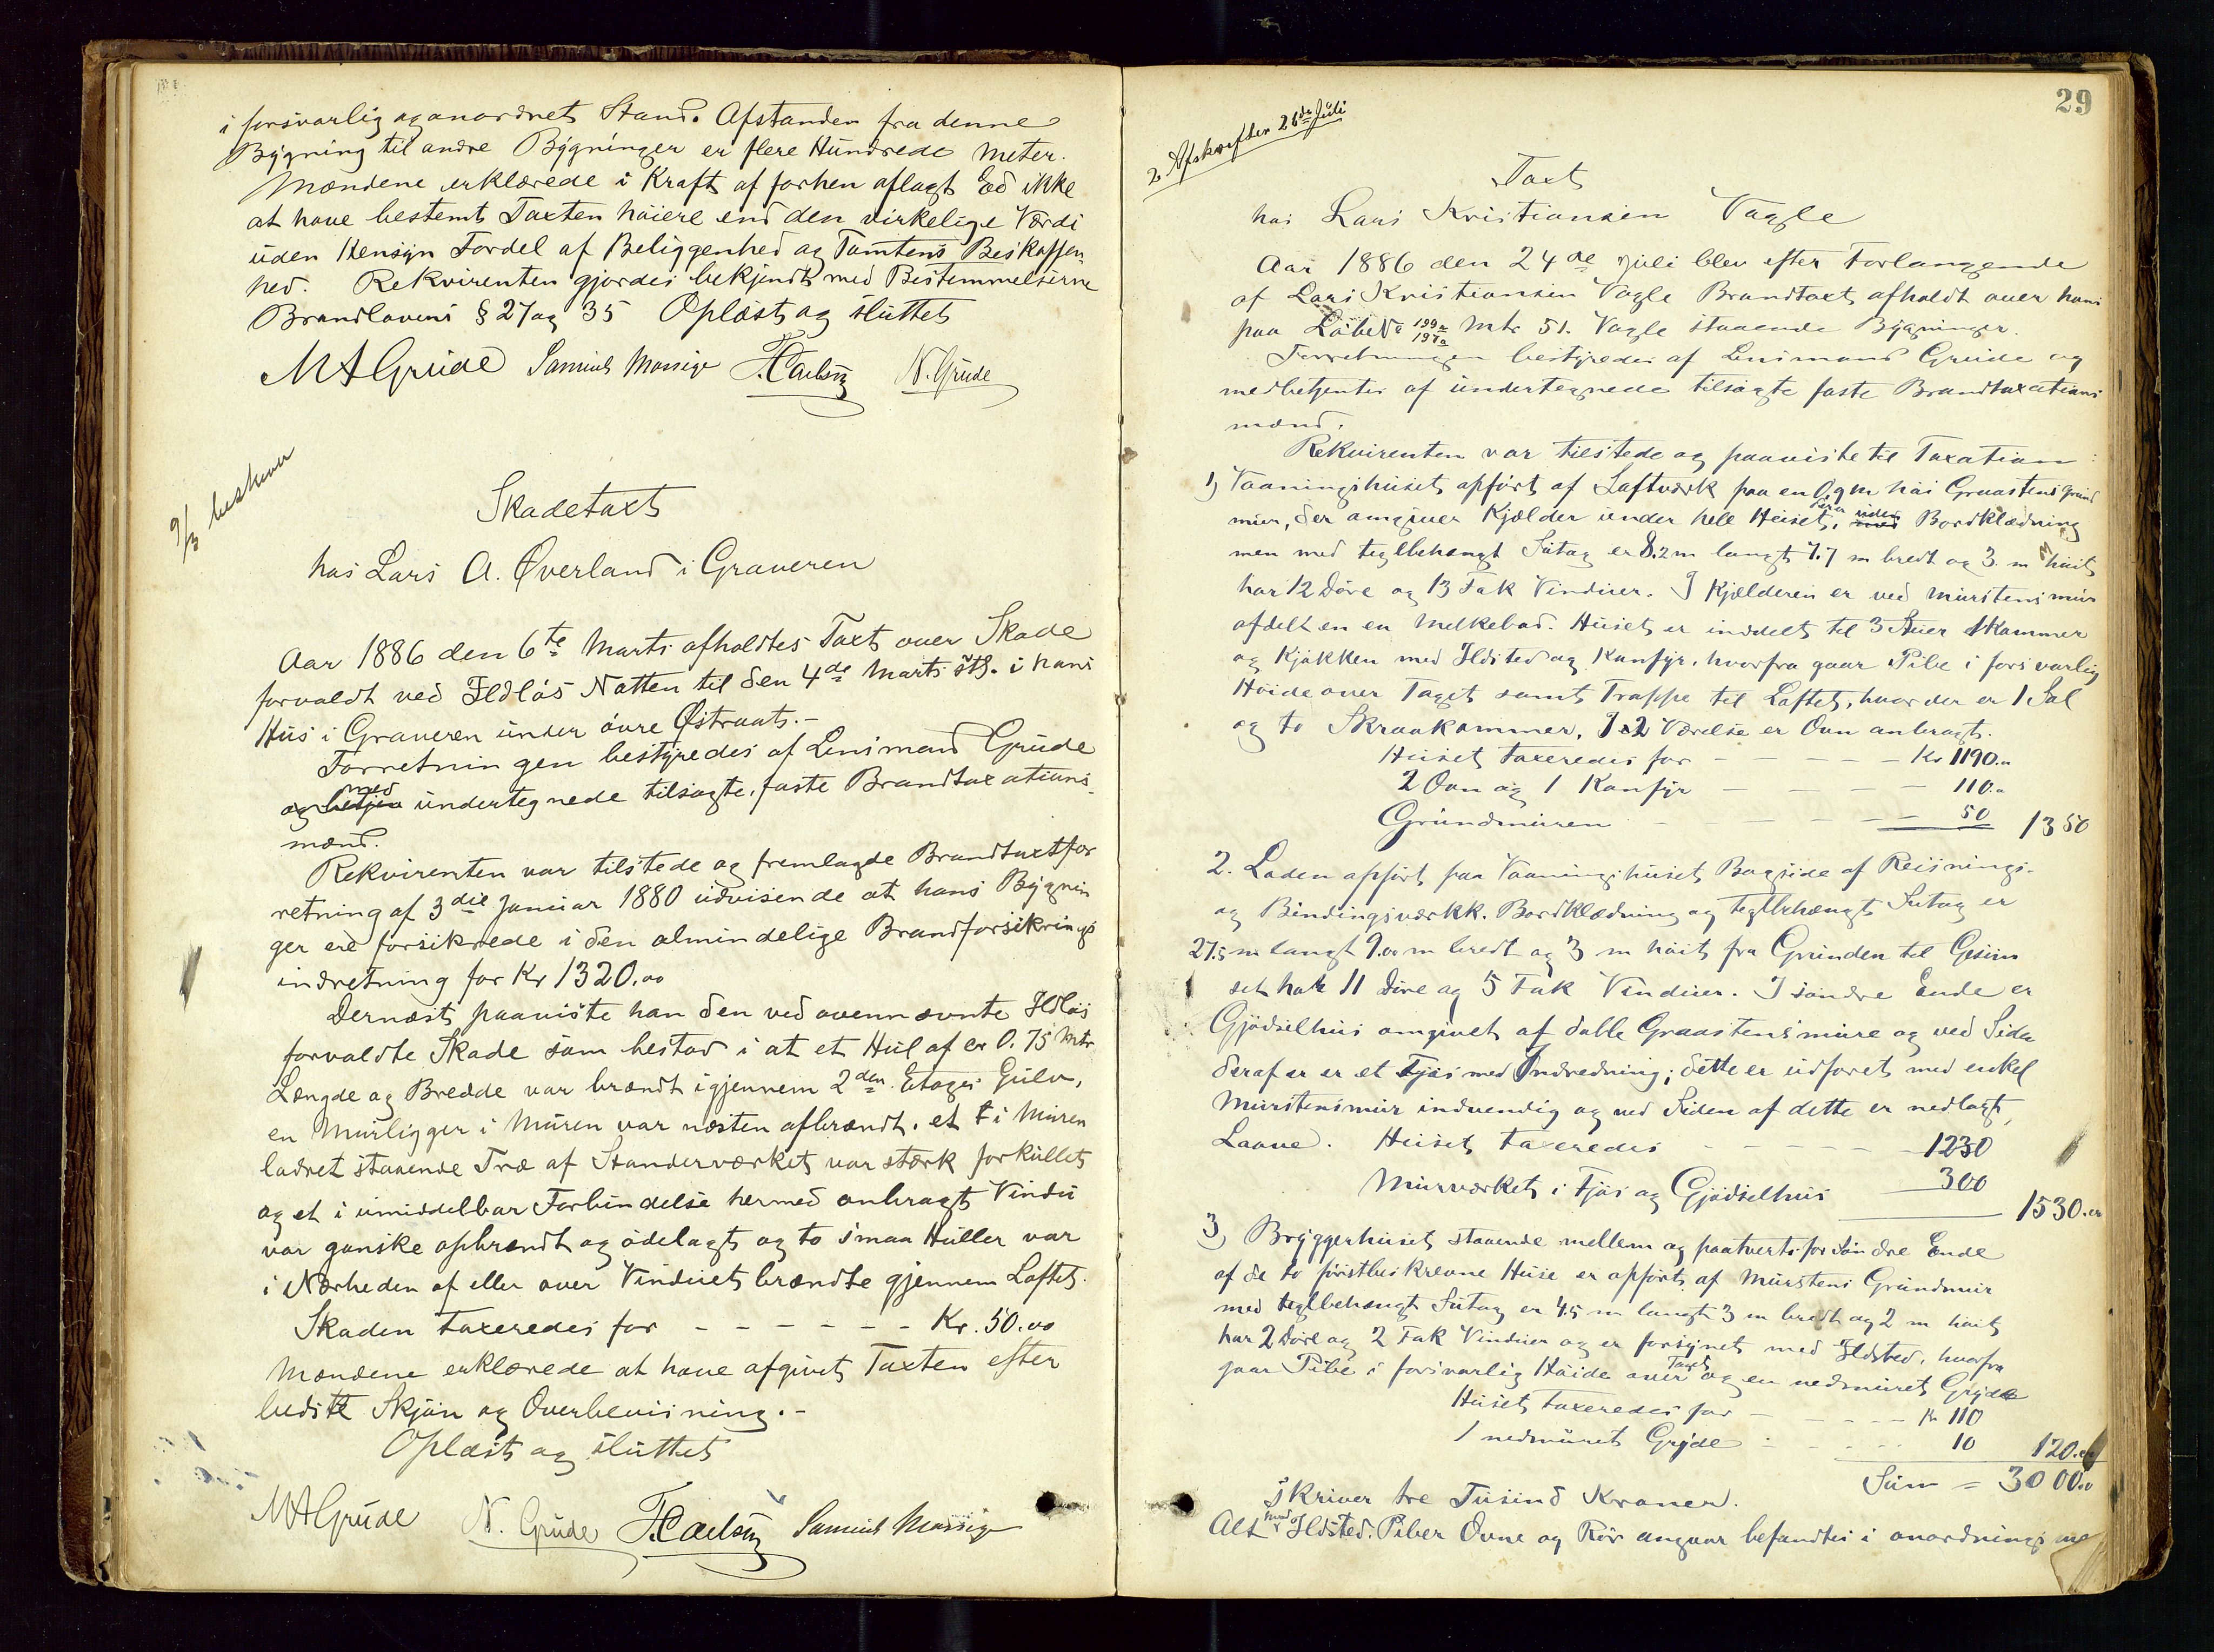 i forsvarlig og anordnet Stand. Afstanden fra denne
Bygning til andre Bygninger er flere Hundrede Meter.
Mændene erklærede i Kraft af forhen aflagt Ed ikke
at have bestemt Taxten høiere end den virkelige Værdi
uden Hensyn Fordel af Beliggenhed og Tomtens Beskaffen
hed. Rekvirenten gjordes bekjendt med Bestemmelserne
Brandlovens § 27 og 35 Oplæst og sluttet
M A Grude Samuel Mossige T. Carlsen N. Grude
9/3 beskrever
Skadetaxt
hos Lars A. Øverland i Graveren
Aar 1886 den 6te Marts afholdtes Taxt over Skade
forvoldt ved Ildløs Natten til den 4de Marts sth. i hans
Hus i Graveren under øvre Østraat.-
Forretningen bestyredes af Lensmand Grude
og betjen med undertegnede tilsagte, faste Brandtaxations
mænd.
Rekvirenten var tilstede og fremlagde Brandtaxtfor
retning af 3die Januar 1880 udvisende at hans Bygnin
ger ere forsikrede i den almindelige Brandforsikrings
indretning for Kr 1320.00
Dernæst paaviste han den ved ovennævnte Ildløs
forvoldte Skade som bestod i at et Hul af ca 0.75 Mtr
Længde og Bredde var brændt igjennem 2den Etages Gulv,
en Murligger i Muren var næsten afbrændt. et i Muren
lodret staaende Træ af Standerværket var stærk forkullet
og et i umiddelbar Forbindelse hermed anbragt Vindu
var ganske opbrændt og ødelagt og to smaa Huller var
i Nærheden af eller over Vinduet brændte gjennem Loftet.
Skaden taxeredes for - - - - - - Kr. 50.00
Mændene erklærede at have afgivet Taxten efter
bedste Skjøn og Overbevisning.-
Oplæst og sluttet
M A Grude N. Grude T. Carlsen Samuel Mossige
29
2 Afskrifter 26de Juli
Taxt
hos Lars Kristiansen Vagle
Aar 1886 den 24de Juli blev efter Forlangende
af Lars Kristiansen Vagle Brandtaxt afholdt over hans
paa Løbe No 199a 197a Mtr 51. Vagle staaende Bygninger.
Forretningen bestyredes af Lensmand Grude og
medbetjentes af undertegnede tilsagte faste Brandtaxations
mænd.
Rekvirenten var tilstede og paaviste til Taxation:
1) Vaaningshuset opført af Laftværk paa en 0,9 m høi Graastens Grund
mur, der omgiver Kjælder under hele Huset. det er uden Bordklædning
men med teglbehængt Sutag er 8.2 m langt 7.7 m bredt og 3. m høit
har 12 Døre og 13 Fak Vinduer. I Kjælderen er ved Murstensmur
afdelt en en Melkebod. Huset er inddelt til 3 Stuer 1 Kammer
og Kjøkken med Ildsted og Komfyr, hvorfra gaar Pibe i forsvarlig
Høide over Taget samt Trappe til Loftet, hvor der er 1 Sal
og to Skraakammer. I 2 Værelse er Ovn anbragt.
Huset taxeredes for - - - - - Kr 1190.00
2 Ovn og 1 Komfyr - - - - 110.00
Grundmuren - - - - - 50 1350
2. Laden opført paa Vaaningshuset Bagside af Reisnings-
og Bindingsværkk. Bordklædning og teglbehængt Sutag er
27.5 m langt 9.00 m bredt og 3 m høit fra Grunden til Gesim
set har 11 Døre og 5 Fak Vinduer. I søndre Ende er
Gjødselhus omgivet af doble Graastensmure og ved Siden
deraf er er et Fjøs med Indredning; dette er udforet med enkel
Murstensmur indvendig og ved Siden af dette er nedlagt
Laave. Huset taxeredes - - - - 1230
Murværket i Fjøs og Gjødselhus 300 1530.00
3) Bryggerhuset staaende mellem og paatverts for Søndre Ende
af de to førstbeskrevne Huse er opført af Murstens Grundmur
med teglbehængt Sutag er 4.5 m langt 3 m bredt og 2 m høit
har 2 Døre og 2 Fak Vinduer og er forsynet med Ildsted, hvorfra
gaar Pibe i forsvarlig Høide over Taget og en nedmuret Gryde
Huset taxeredes for - - - - Kr 110
1 nedmuret Gryde - - - - 10 120.00
Sum = 3000.0
skriver tre Tusind Kroner.
Alt hvad Ildsted. Piber Ovne og Rør angaar befandtes i anordnings mæ